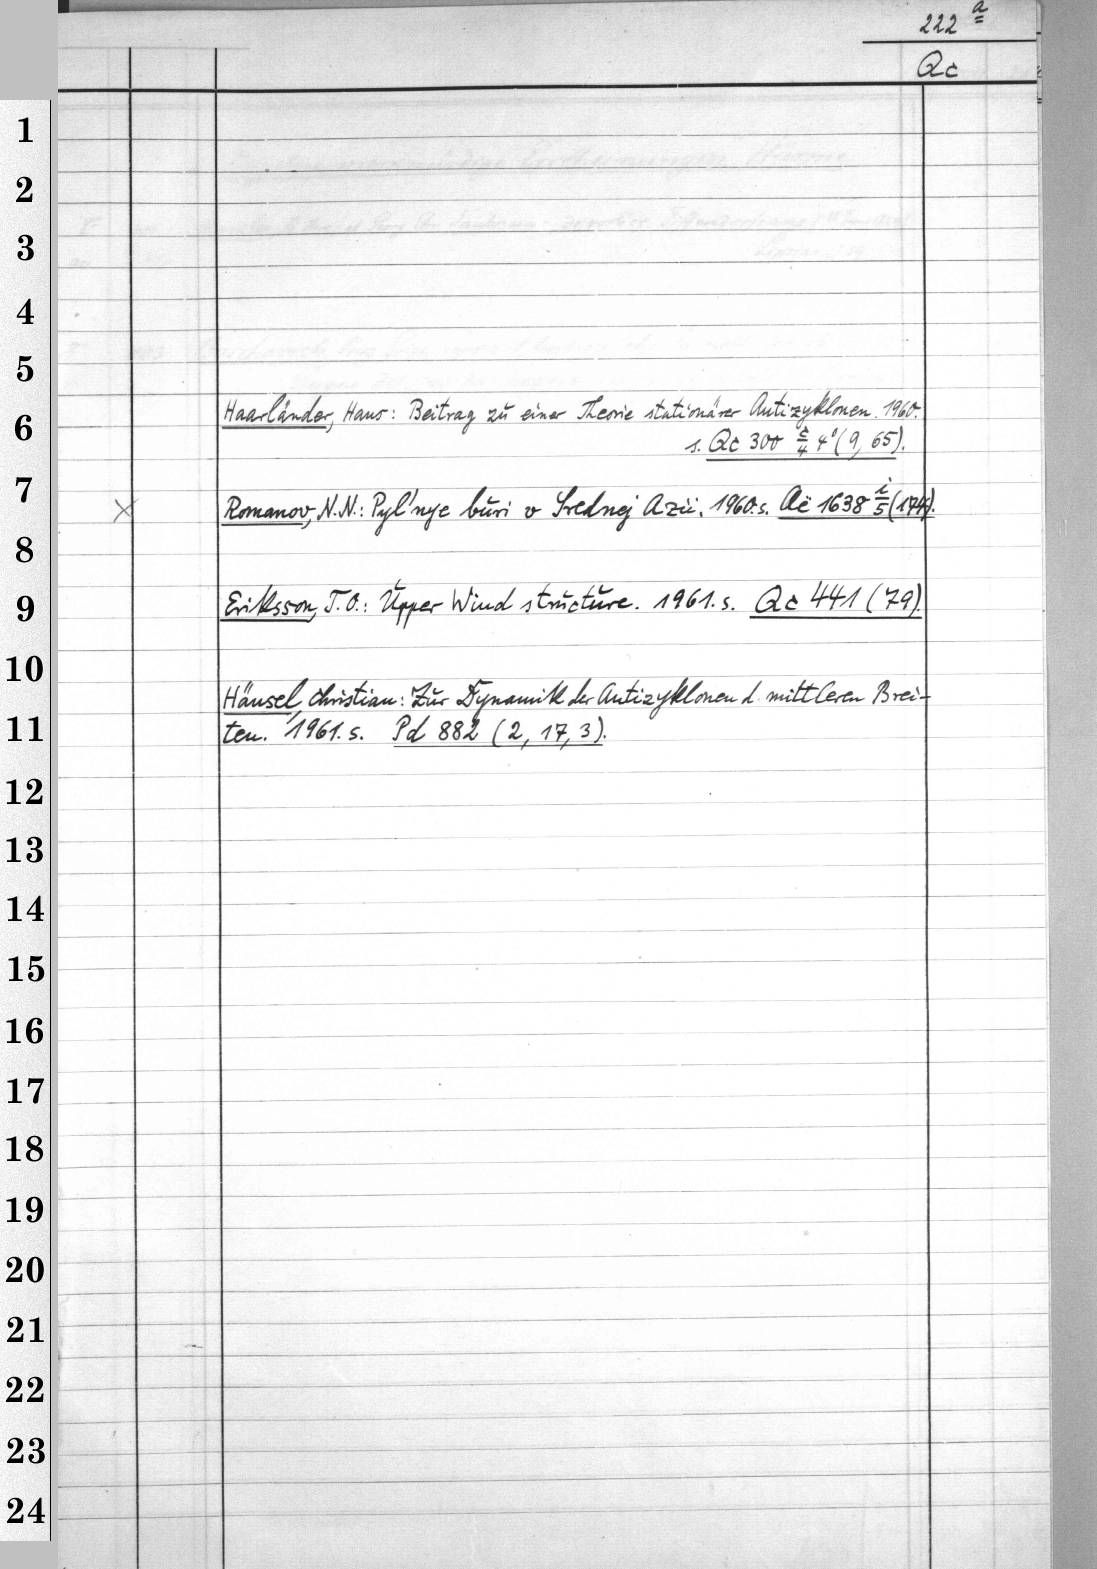 222 a
Qc
1
2
3
4
5
6
7
8
9
10
11
12
13
14
15
16
17
18
19
20
21
22
23
24
Haarländer, Hans: Beitrag zu einer Theorie stationärer Antizyklonen. 1960.
s. Qc 300 c/4 4° (9, 65).
Romanov, N.N.: Pyl'nye buri v Srednej Azii. 1960. s. Aë 1638 i/5 (174).
Eriksson, T.O.: Upper Wind structure. 1961. s. Qc 441 (79).
Hänsel, Christian: Zur Dynamik der Antizyklonen d. mittleren Brei-
ten. 1961. s. Pd 882 (2, 17, 3).